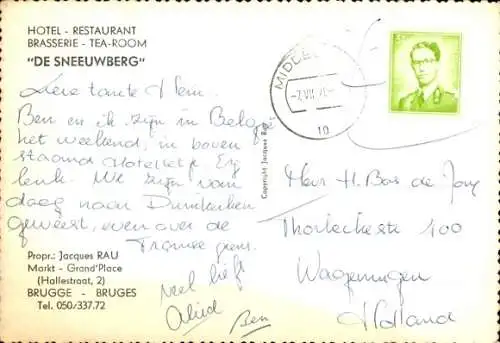 HOTEL - RESTAURANT
BRASSERIE - TEA-ROOM
"DE SNEEUWBERG"
Lieve tante Hem.
Ben en ik zijn in België
het weekend, in boven
staand Hotelletje. Erg
leuk. We zijn van
daag naar Duinkerken
geweest, even over de
Franse grens.
veel liefs
Ben
Propr.: Jacques RAU
Markt - Grand'Place
(Hallestraat, 2)
BRUGGE - BRUGES
Tel. 050/337.72
Copyright Jacques Rau
10
Heer H. Bos de Jong
100
Wageningen
Holland